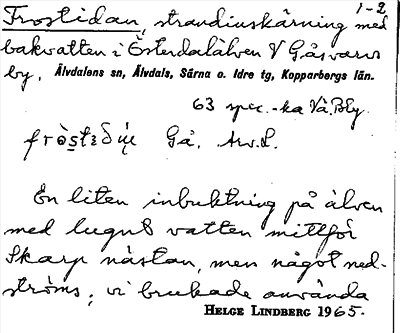 1-2
Frostidan, strandinskärning med
bakvatten i Österdalälven V Gåsvarv
by, Älvdalens sn, Älvdals, Särna o. Idre tg, Kopparbergs län.
63 spec.-ka Vä. Bly.
Gå,
En liten inbuktning på älven
med lugnt vatten mittför
Skarp nästan, men något ned-
ströms; vi brukade använda
HELGE LINDBERG 1965.